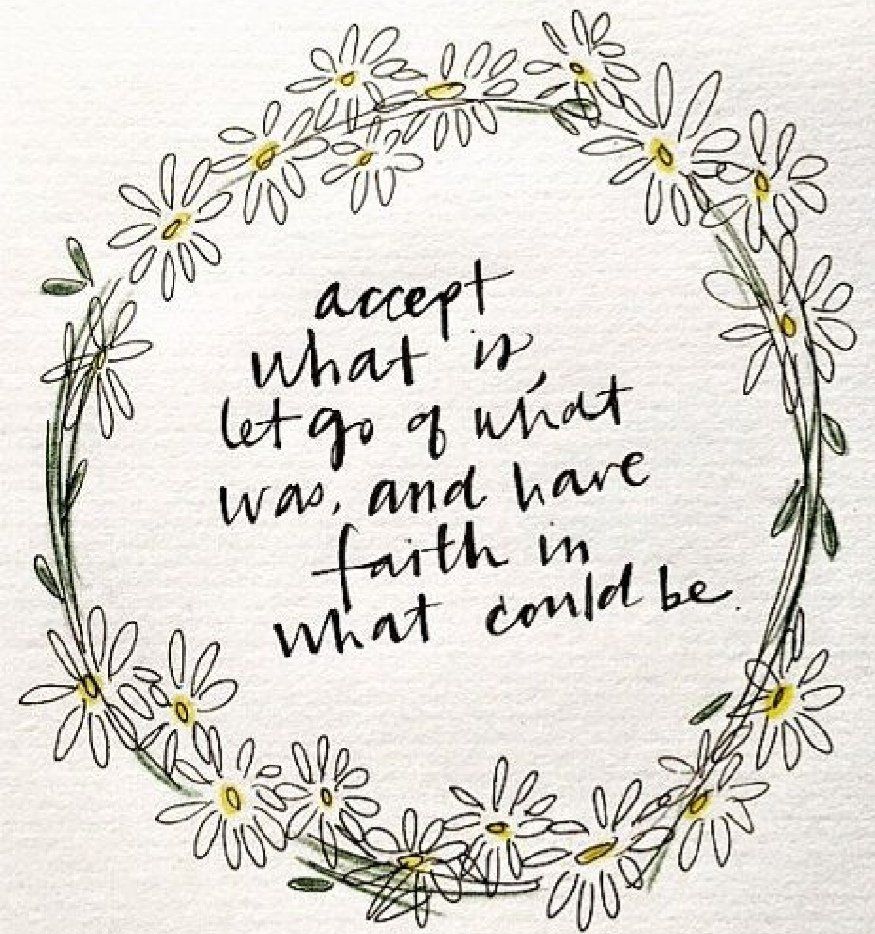 accept
what is,
let go of what
was, and have
faith in
what could be.